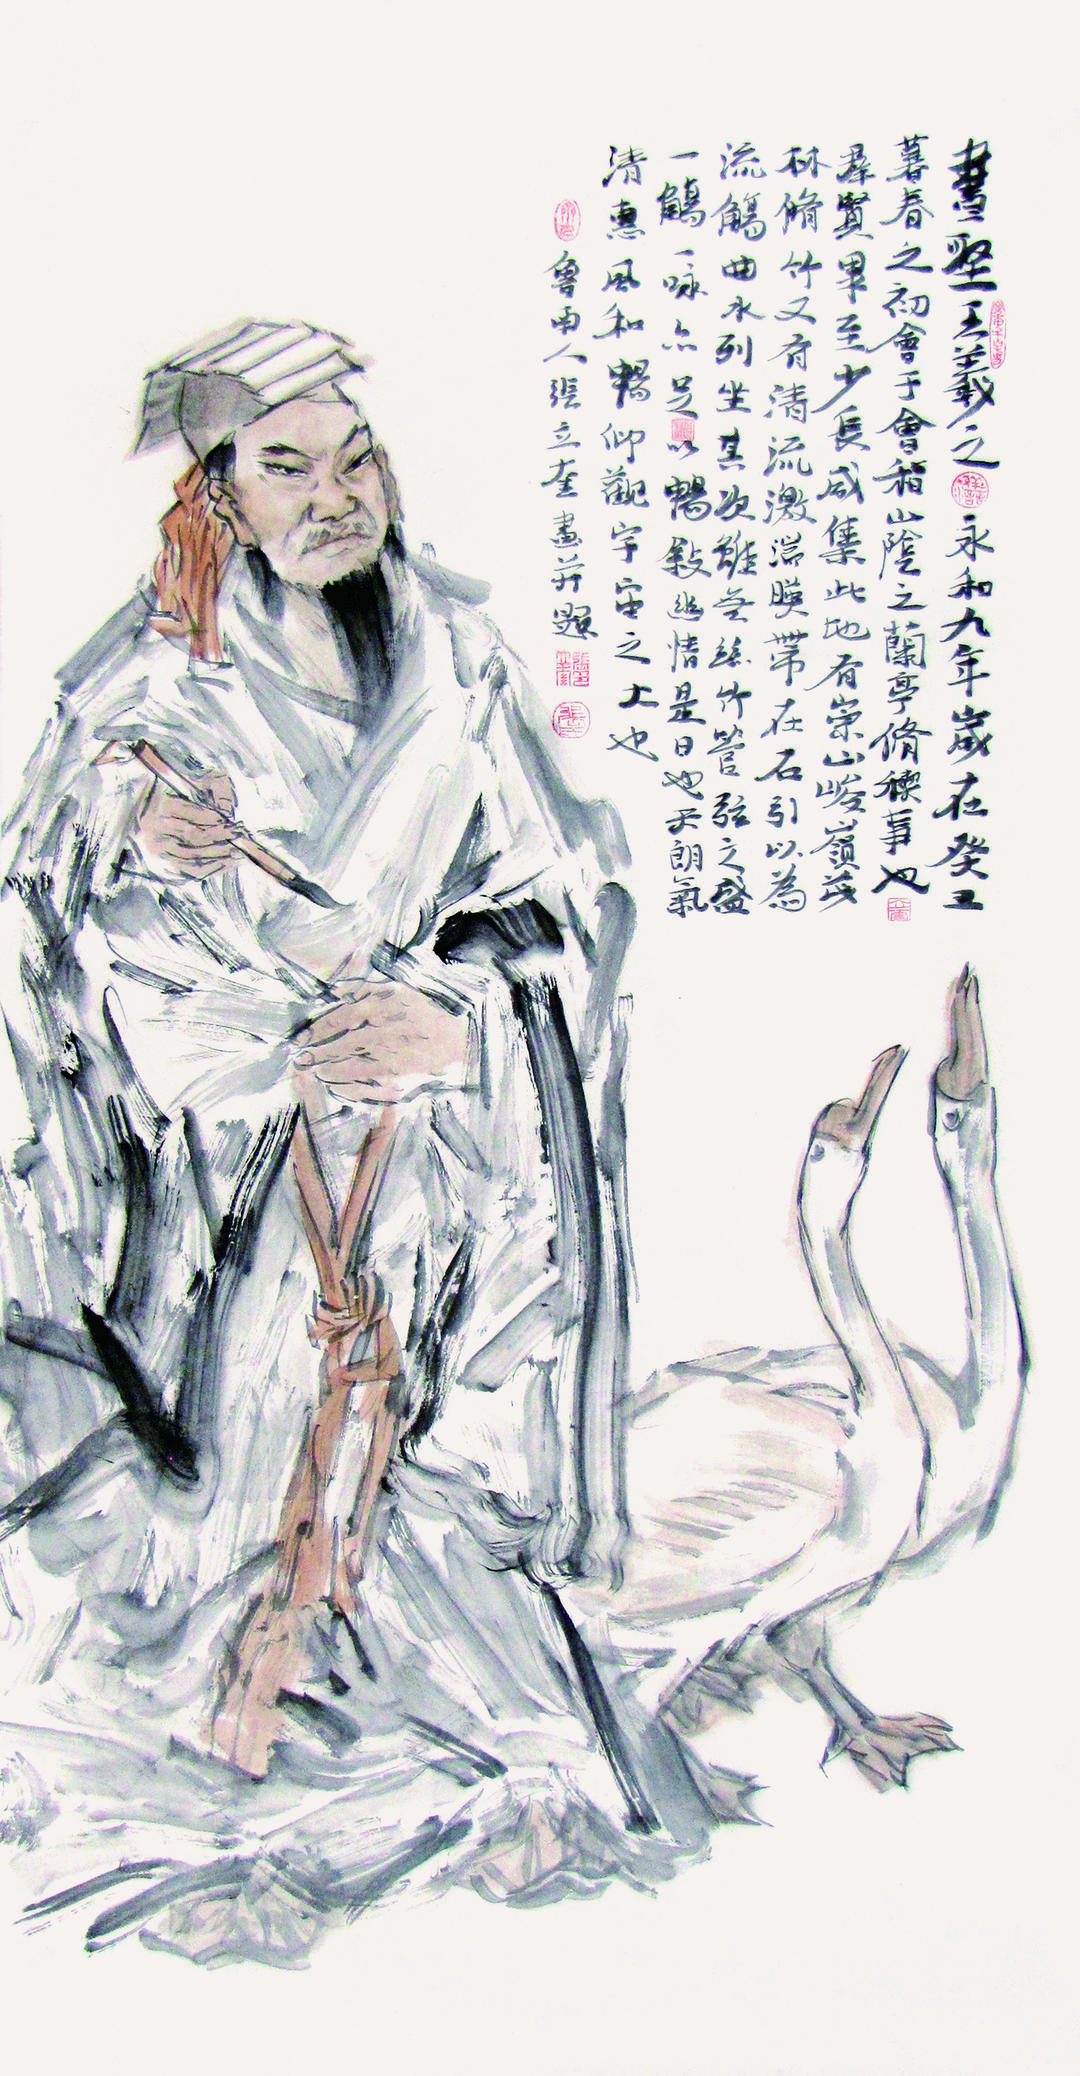 書聖王羲之永和九年歲在癸丑
暮春之初會于會稽山陰之蘭亭脩禊事也
羣賢畢至少長咸集此地有崇山峻嶺茂
林脩竹又有清流激湍暎帶在右引以為
流觴曲水列坐其次雖無絲竹管弦之盛
一觴一詠亦足以暢敍幽情是日也天朗氣
清惠風和暢仰觀宇宙之大也
魯南人張立奎畫并題